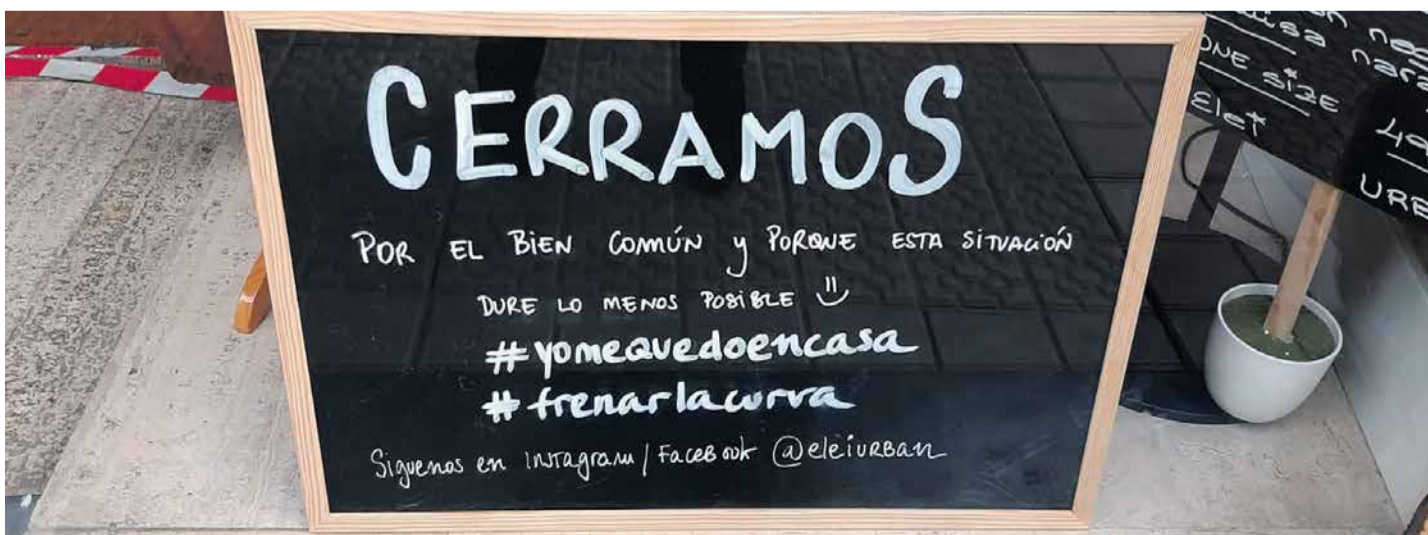 CERRAMOS
POR EL BIEN COMÚN y PORQUE ESTA SITUACIÓN
DURE LO MENOS POSIBLE
#yomequedoencasa
#frenarlacurva
Siguenos en Instagram / FaceBook @eleiurban
ONE SIZE